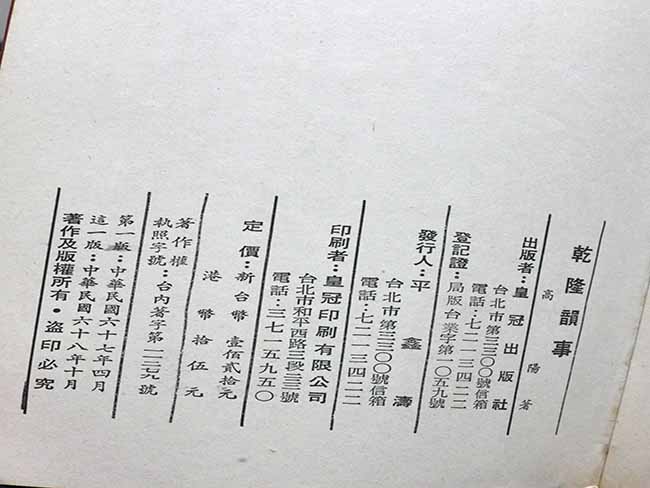 乾隆韻事
高陽 著
出版者:皇冠出版社
台北市第三三〇〇號信箱
電話:七二一三四二二
登記證:局版台業字第一〇五九號
發行人:平鑫濤
台北市第三三〇〇號信箱
電話:七二一三四二二
印刷者:皇冠印刷有限公司
台北市和平西路三段
電話:三七一五九五〇
定價:新台幣 壹佰貳拾元
港幣 拾伍元
著作權
執照字號:台內著字第號
第一版:中華民國六十七年四月
這一版:中華民國六十八年十月
著作及版權所有・盜印必究